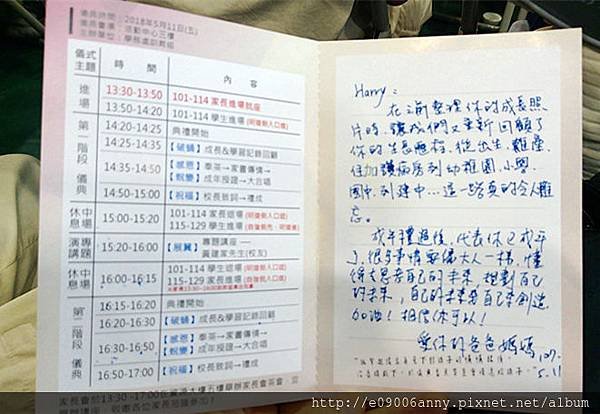 2018年5月11日(五)
活動中心三樓
儀式主題 時間 內容
進場 13:30-13:50 101-114 家長進場就座
13:50-14:20 101-114 學生進場
第一階段儀典 14:20-14:25 典禮開始
14:25-14:35 【破蛹】成長&學習記錄回顧
14:35-14:50 【感恩】奉茶→家書傳情→
【蛻變】成年授證→大合唱
14:50-15:00 【祝福】校長致詞→禮成
中場休息 15:00-15:20 101-114 家長退場
115-129 學生進場
專題演講 15:20-16:00 【展翼】專題講座 —
黃建家先生(校友)
中場休息 16:00-16:15 101-114 學生退場
115-129 家長進場
第二階段儀典 16:15-16:20 典禮開始
16:20-16:30 【破蛹】成長&學習記錄回顧
16:30-16:50 【感恩】奉茶→家書傳情→
【蛻變】成年授證→大合唱
16:50-17:00 【祝福】校長致詞→禮成
Harry:
在之前整理你的成長照
片時,讓我們又重新回顧了
你的生長歷程。從出生、難產、
住加護病房到幼稚園、小學、
國中、到建中…這一路真的令人難
忘。
成年禮過後,代表你已成年
了,很多事情要像大人一樣,懂
得去思考自己的未來,規劃自己
的未來,自己的未來要自己來創造
加油!相信你可以!
愛你的爸爸媽媽
107.
5.11
http://e09006anny.pixnet.net/album